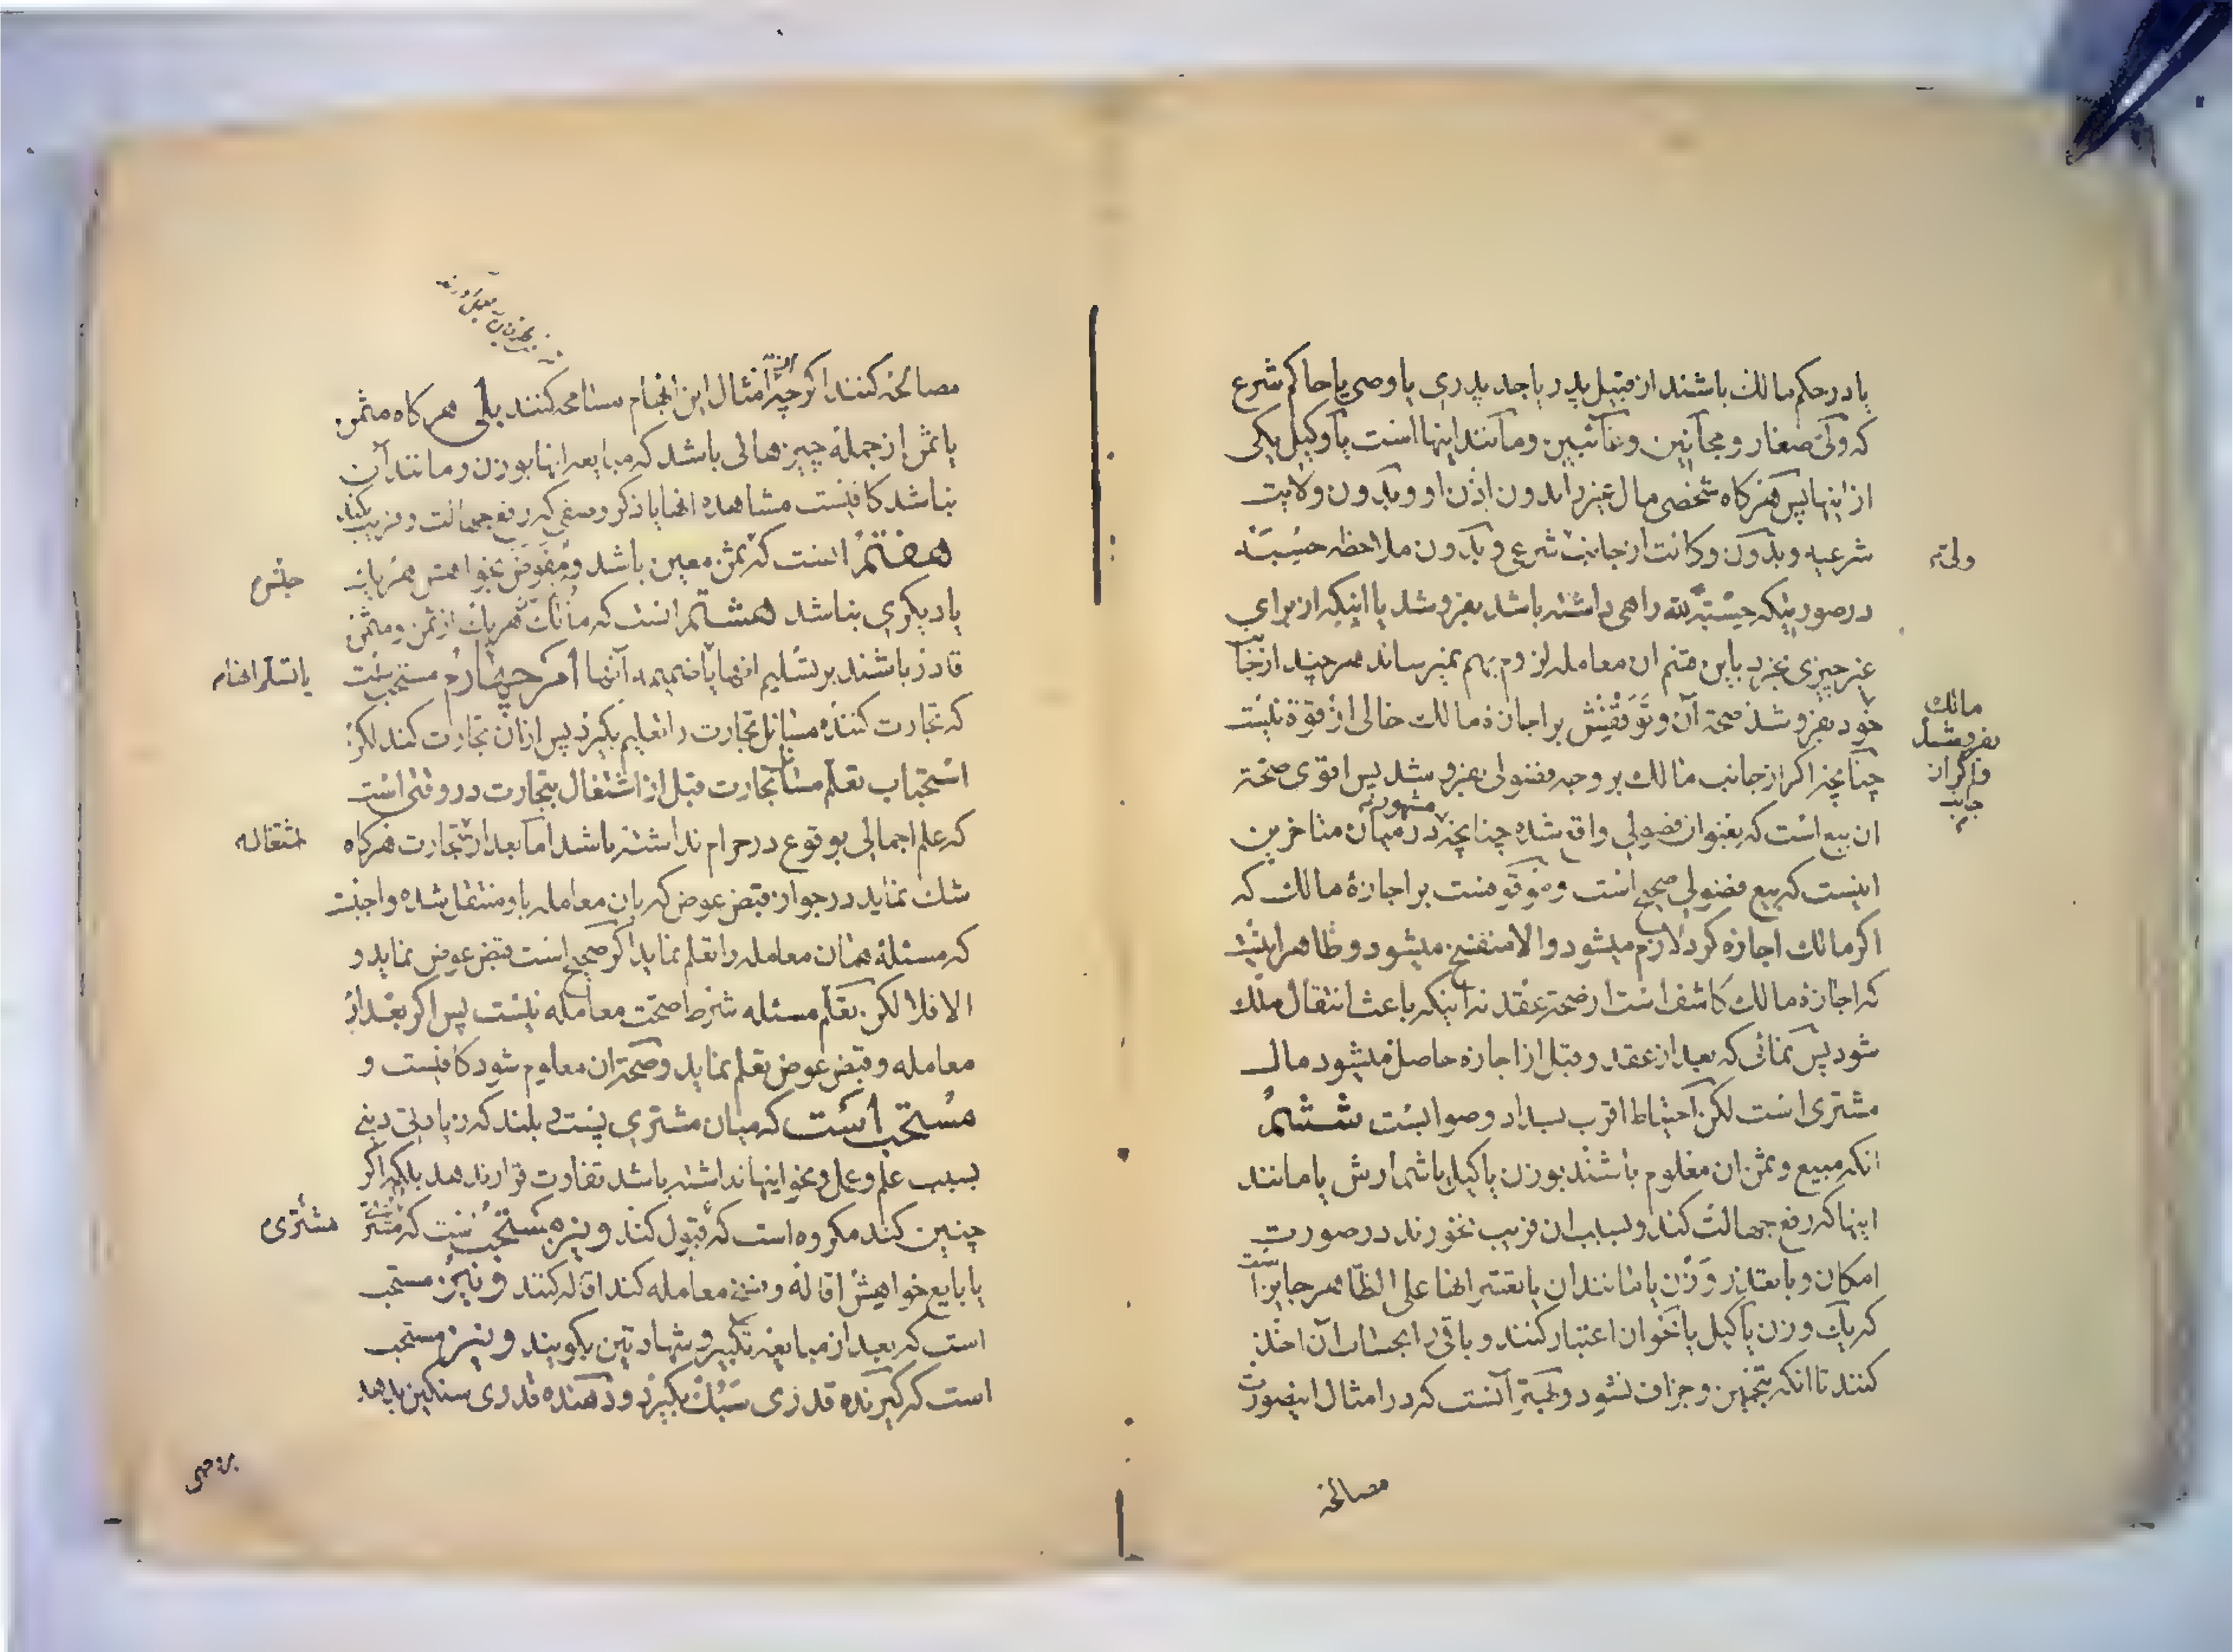 یا در حکم مالک باشند از قبیل پدر یا جد پدری یا وصی یا حاکم شرع
که ولی صغار و مجانین و غائبین و مانند اینها است یا وکیل یکی
از اینها پس هرکاه شخصی مال غیر را بدون اذن او و بدون ولایت
شرعیه و بدون وکالت از جانب شرع و بدون ملاحظه حسبته
در صورتیکه حسبة لله راهی داشته باشد بفروشد یا اینکه از برای
غیر چیزی بخرد باین قسم ان معامله لزوم بهم نمیرساند هر چند از جانب
خود بفروشد صحة آن و توقفش بر اجازهٔ مالک خالی از قوة نیست
چنانچه اکر از جانب مالک بر وجه فضولی بفروشد پس اقوی صحة
ان بیع است که بعنوان فضولی واقع شده چنانچه در میان متاخرین
اینست که بیع فضولی صحیح است و موقوفست بر اجازهٔ مالک که
اکر مالک اجازه کرد لازم میشود و الا منفسخ میشود و ظاهر اینست
که اجازهٔ مالک کاشف است از صحة عقد نه اینکه باعث انتقال ملک
شود پس نمائی که بعد از عقد و قبل از اجازه حاصل میشود مال
مشتری است لکن احتیاط اقرب بسداد و صوابست ششم
انکه مبیع و ثمن ان معلوم باشند بوزن یا کیل یا شمارش یا مانند
اینها که رفع جهالت کند و بسبب ان فریب نخورند در صورت
امکان و با تعذر وزن یا مانند ان یا تعسر انها علی الظاهر جایز است
که یک وزن یا کیل یا نحو ان اعتبار کنند و باقی را بحساب آن اخذ
کنند تا انکه تخمین و جزاف نشود و آنست که در امثال اینصورت
ولیه
مالک
بفروشد
و اکر از
جانب
مصالحه
مصالحه کنند اکرچه امثال این انجام مسامحه کنند بلی هرکاه مثمن
یا ثمن از جمله چیزهائی باشد که مبایعه انها بوزن و مانند آن
نباشد کافیست مشاهده انها یا ذکر وصفی که رفع جهالت و فریب کند
هفتم انست که ثمن معین باشد و مفوض بخواهش هر یک
یا دیکری نباشد هشتم انست که مالک هر یک از ثمن و مثمن
قادر باشند بر تسلیم انها یا ضمیمه آنها امر چهارم مستحبست
که تجارت کننده مسائل تجارت را تعلیم بکیرد پس از ان تجارت کند لکن
استحباب تعلم مسائل تجارت قبل از اشتغال بتجارت در وقتی است
که علم اجمالی بوقوع در حرام نداشته باشد اما بعد از تجارت هرکاه
شک نماید در جواز قبض عوض که بان معامله باو منتقل شده واجبست
که مسئله همان معامله را تعلم نماید اکر صحیح است قبض عوض نماید و
الا فلا لکن تعلم مسئله شرط صحت معامله نیست پس اکر بعد از
معامله و قبض عوض تعلم نماید و صحة ان معلوم شود کافیست و
مستحب است که میان مشتری پست و بلند که زیادتی دینی
بسبب علم و عمل و نحو اینها نداشته باشد تفاوت قرار ندهد بلکه اکر
چنین کند مکروه است که قبول کند و نیز مستحبست که مشتری
یا بایع خواهش اقاله و فسخ معامله کند اقاله کنند و نیز مستحب
است که بعد از مبایعه تکبیر و شهادتین بکویند و نیز مستحب
است که کیرنده قدری سبک بکیرد و دهنده قدری سنکین بدهد
یا تسلیم انها م
مشتری م